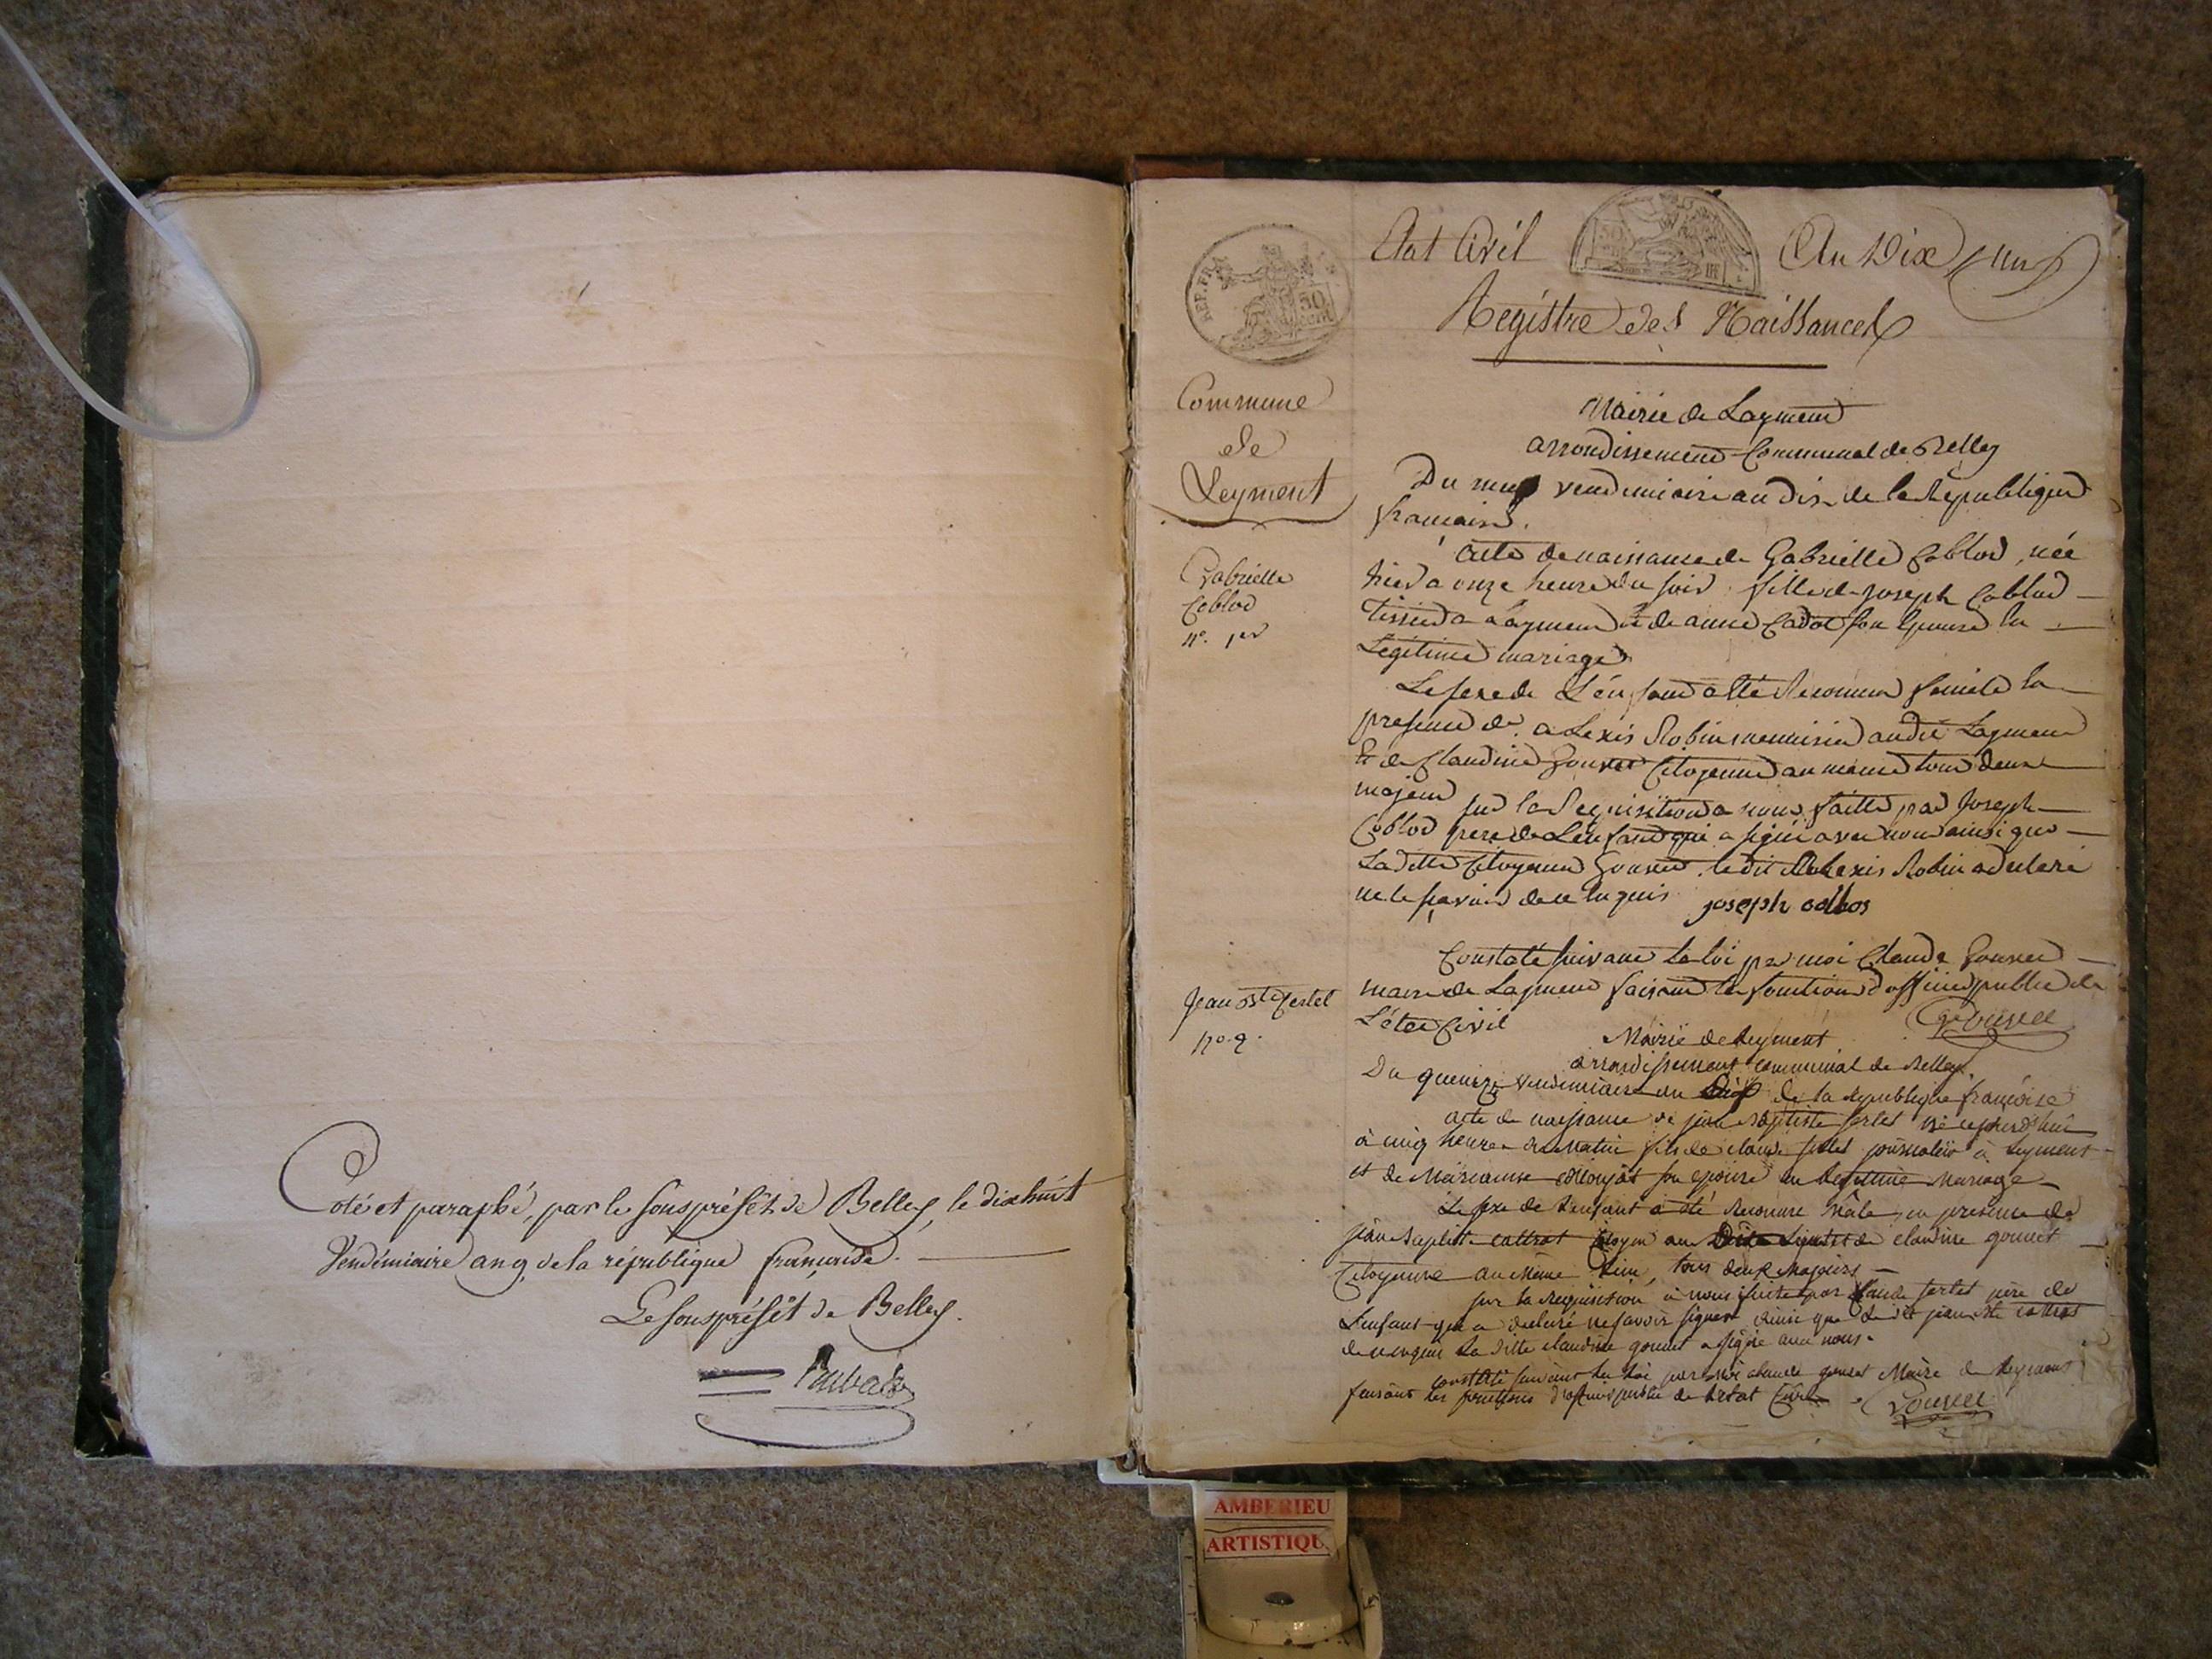 Coté et paraphé, par le sous préfet de Belley, le dix huit
Vendémiaire an 9 de la république française.
Le sous préfet de Belley.
REP. FRA
50
cent
Etat Civil
An Dix
Registre des Naissances
Commune
de
Leyment
Mairie de Layment
arrondissement Communal de Belley
Du neuf vendemiaire an dix de la Republique
francaise.
Gabrielle
Coblod
n°. 1er
Acte de naissance de Gabrielle Coblod, née
hier a onze heure du soir, fille de joseph Coblod
Tissier a Layment et de anne Cadot son Epouse En
Legitime mariage
Le sexe de L'enfant a été Reconnu femele En
presence de alexis Robin menuisier audit Layment
Et de Claudine Gouvet Citoyenne au meme tous deux
majeur
sur la Requisition a nous faitte par Joseph
Coblod pere de L'enfant qui a signé avec nous ainsi que
La ditte Citoyenne Gouvet, le dit Alexis Robin a declaré
ne le savoir de ce Enquis
joseph coblos
Constaté suivant La loi par moi Claude Gouvet
maire de Layment faisant les fonctions d'officier public de
L'état Civil
Gouvet
Jean Bte fertet
n°. 2.
Mairie de Leyment
arrondissement communal de Belley.
Du quinze vendemiaire an Dix de la republique françoise
acte de naissance de jean Baptiste fertet né aujourd'hui
à cinq heures du Matin fils de claude fertet journalier à Leyment
et de Marianne son epouse en Legitime Mariage
Le sexe de L'enfant a été Reconnu Mâle, en presence de
jean Baptiste cottrat citoyen au de claudine gouvet
Citoyenne au Même lieu, tous deux Majeurs
sur la Requisition à nous faite par claude fertet père de
L'enfant qui a declaré ne savoir signer ainsi que Le dit jean Bte cottrat
de ce enquis La ditte claudine gouvet a signé avec nous.
constaté suivant La Loi par moi claude gouvet Maire de Leyment
faisant les fonctions d'officier public de L'etat Civil
Gouvet
AMBERIEU
ARTISTIQU